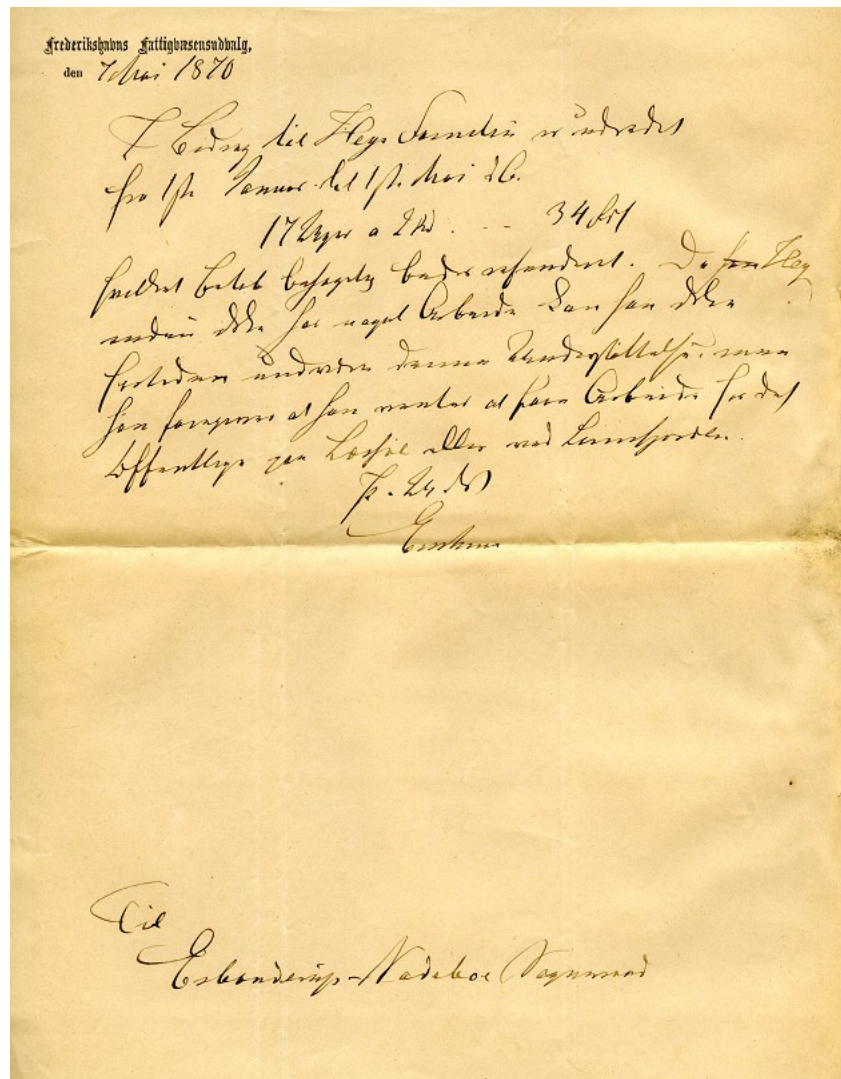 Frederikshavns Fattigvæsensudvalg,
den 7 Mai 1870
I Bidrag til Heys Familie er udredet
fra 1ste Januar til 1ste Mai d.A.
17 Uger a 2 Rd. - - 34 Rd
hvilket Beløb behageligt bedes refunderet. Da han Hey
endnu ikke har noget Arbeide kan han ikke
fortiden undvære denne Understøttelse, men
han foregiver at han venter at faae Arbeide for det
Offentlige paa Læssøe eller ved Limfjorden.
P. U. V.
Til
Esbønderup-Nødeboe Sogneraad